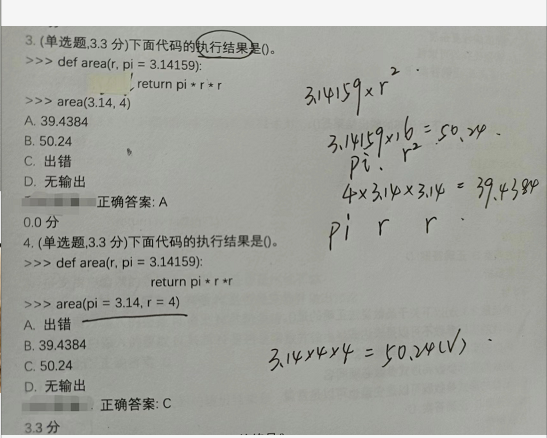 3. (单选题,3.3 分)下面代码的执行结果是()。
>>> def area(r, pi = 3.14159):
return pi * r * r
>>> area(3.14, 4)
A. 39.4384
B. 50.24
C. 出错
D. 无输出
正确答案: A
0.0 分
4. (单选题,3.3 分)下面代码的执行结果是()。
>>> def area(r, pi = 3.14159):
return pi * r *r
>>> area(pi = 3.14, r = 4)
A. 出错
B. 39.4384
C. 50.24
D. 无输出
正确答案: C
3.3 分
3.14159×r²
3.14159×16=50.24.
pi. r²
4×3.14×3.14 = 39.4384
pi r r .
3.14×4×4 = 50.24(√)